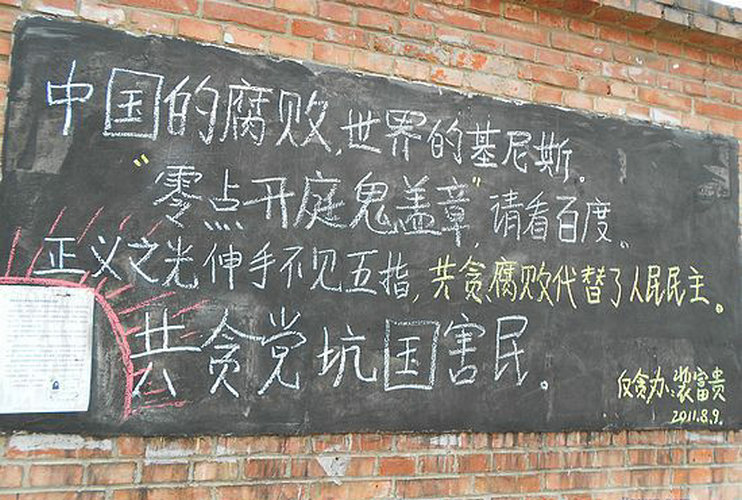 中国的腐败,世界的基尼斯。
"零点开庭鬼盖章",请看百度。
正义之光伸手不见五指,共贪腐败代替了人民民主。
共贪党坑国害民。
反贪办:裴富贵
2011.8.9.